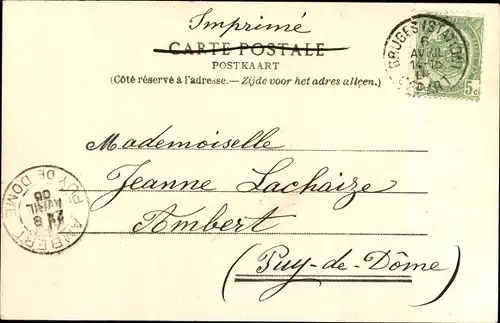 Imprimé
CARTE POSTALE
POSTKAART
(Côté réservé à l'adresse.— Zijde voor het adres alleen.)
BRUGES (STATION)
6
AVRIL
14-15
5c
Mademoiselle
Jeanne Lachaize
Ambert
(Puy-de-Dôme)
AMBERT
PUY DE DOME
8
AVRIL
05